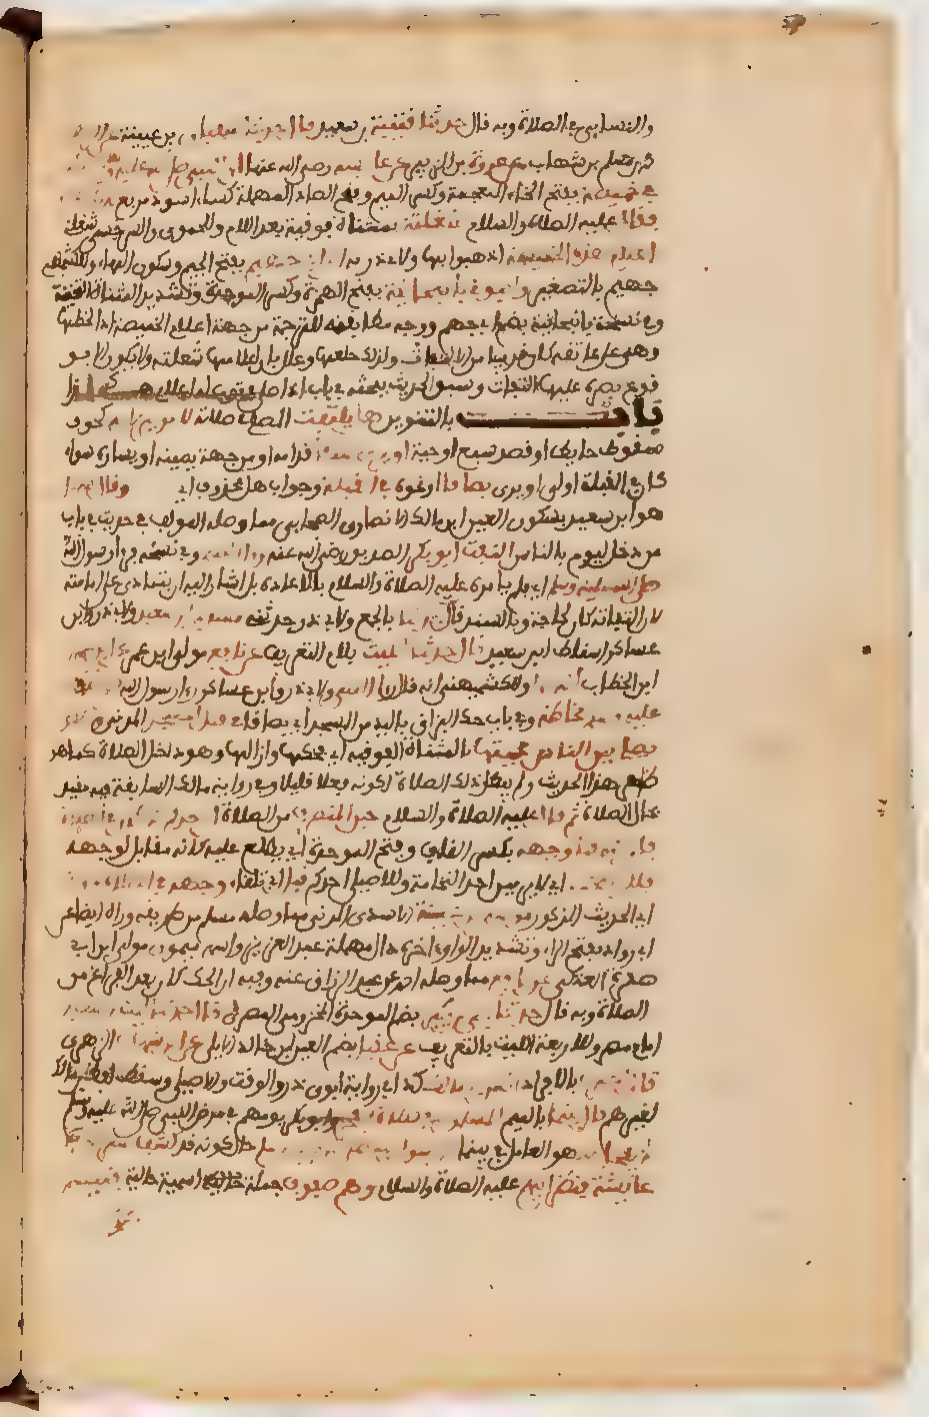 والنسايى في الصلاة وبه قال حدثنا قتيبة بن سعيد قال حدثنا سفيان بن عيينة عن
الزهري بن شهاب عن عروة بن الزبير عن عايشة رضي الله عنها ان النبي صلى الله عليه وسلم
في خميصة بفتح الخاء المعجمة وكسر الميم وبفتح الصاد المهملة كساء اسود مربع
فقال عليه الصلاة والسلام شغلتني بمثناة فوقية بعد اللام وللحموي والسرخسي شغلني
اعلام هذه الخميصة اذهبوا بها ولابي ذر به الى ابي جهم بفتح الجيم وسكون الهاء وللكشميهني
جهيم بالتصغير واتوني بانبجانية بفتح الهمزة وكسر الموحدة وتشديد المثناة التحتية
وفي نسخة بانبجانية بضم ابي جهم ووجه مطابقته للترجمة من جهة اعلام الخميصة اذا لحظها
وهي على عاتقه كان قريبا من الالتفات ولذلك خلعها وعلل بان اعلامها شغلته ولا يكون الا بو
قوع بصره عليها التفات وسبق الحديث بمبحثه في باب اذا صلى في ثوب له اعلام هـذا
باب بالتنوين هل يلتفت المصلي في صلاته لامر ينزل به كخوف
سقوط حايط او قصد سبع او حية او يرى شيئا قدامه او من جهة يمينه او يساره سواء
كان في القبلة اولى او يرى بصاقا او نحوه في القبلة وجواب هل محذوف اي وقال سهل
هو ابن سعد بسكون العين ابن مالك الانصاري الصحابي مما وصله المولف في حديث في باب
من دخل ليوم بالناس التفت ابو بكر الصديق رضي الله عنه فراى النبي وفي نسخة فراى رسول الله
صلى الله عليه وسلم اي فلم يامره عليه الصلاة والسلام بالاعادة بل اشار اليه ان يتمادى على امامته
لان التفاته كان لحاجة وبالسند قال حدثنا بالجمع ولابي ذر حدثني قتيبة بن سعيد ولابي ذر وابن
عساكر اسقاط ابن سعيد قال حدثنا الليث بلام التعريف عن نافع مولى ابن عمر عن ابن عمر
ابن الخطاب انه راى وللكشميهني انه قال راى النبي ولابي ذر وابن عساكر راى رسول الله صلى الله
عليه وسلم نخامة وفي باب حك البزاق باليد من المسجد اي بصاقا في قبلة المسجد المدني وهو
يصلي بين الناس فحتها بالمثناة الفوقية اي فحكها وازالها وهو داخل الصلاة كما هو
ظاهر هذا الحديث ولم يبطل ذلك الصلاة لكونه فعلا قليلا وفي رواية مالك السابقة غير مقيد
بحال الصلاة ثم قال عليه الصلاة والسلام حين انصرف من الصلاة ان احدكم اذا كان في الصلاة
فان الله قبل وجهه بكسر القاف وفتح الموحدة اي يطلع عليه كانه مقابل لوجهه
فلا يتنخمن اي لا يرمين احد النخامة وللاصيلي احدكم قبل اي تلقاء وجهه في الصلاة رواه
اي الحديث المذكور موسى بن عقبة الاسدي المدني مما وصله مسلم من طريقه ورواه ايضا عن
ابن ابي رواد بفتح الراء وتشديد الواو اخره دال مهملة عبد العزيز واسم ميمون مولى ابن ابي
صفرة العتكي عن نافع مما وصله احمد عن عبد الرزاق عنه وفيه ان الحك كان بعد الفراغ من
الصلاة وبه قال حدثنا يحيى بن بكير بضم الموحدة المخزومي المصري قال حدثنا ليث بن سعد
امام مصر وللاربعة الليث بالتعريف عن عقيل بضم العين بن خالد الايلي عن ابن شهاب الزهري
قال اخبرني بالافراد انس بن مالك كذا في رواية ابوي ذر والوقت والاصيلي وسقط لفظ بن مالك
لغيرهم قال بينما بالميم المسلمون في صلاة الفجر وابو بكر يومهم في مرض النبي صلى الله عليه وسلم
لم يفجاهم هو العامل في بينما الا رسول الله صلى الله عليه وسلم حال كونه قد كشف ستر حجرة
عايشة فنظر اليهم عليه الصلاة والسلام وهم صفوف جملة اسمية حالية فتبسم